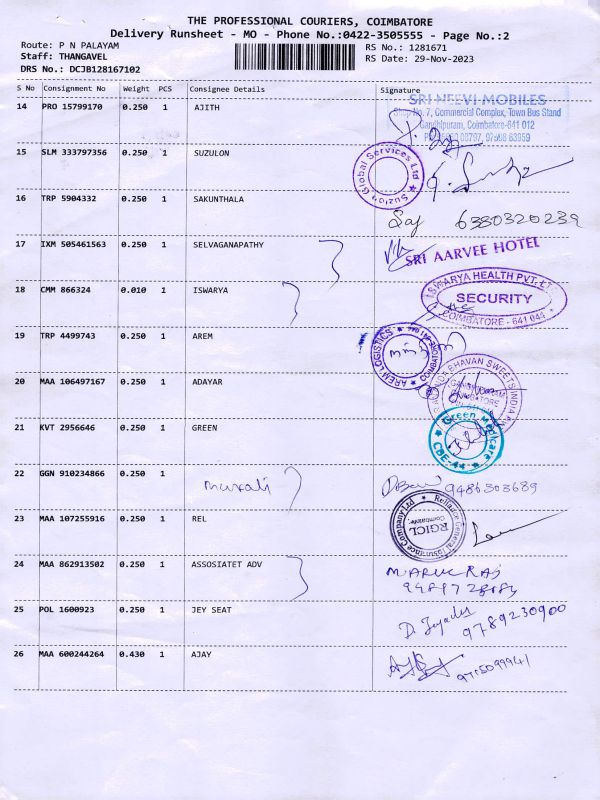 THE PROFESSIONAL COURIERS, COIMBATORE
Delivery Runsheet - MO - Phone No.:0422-3505555 - Page No.:2
Route: P N PALAYAM
Staff: THANGAVEL
DRS No.: DCJB128167102
RS No.: 1281671
RS Date: 29-Nov-2023
S No Consignment No Weight PCS Consignee Details Signature
14 PRO 15799170 0.250 1 AJITH
SRI NEEVI MOBILES
Shop No. 7, Commercial Complex, Town Bus Stand
Gandhipuram, Coimbatore-641 012
15 SLM 333797356 0.250 1 SUZULON
Suzlon Global Services Ltd
16 TRP 5904332 0.250 1 SAKUNTHALA
Saj 6380320239
17 IXM 505461563 0.250 1 SELVAGANAPATHY
SRI AARVEE HOTEL
18 CMM 866324 0.010 1 ISWARYA
ISWARYA HEALTH PVT. LT
SECURITY
COIMBATORE - 641 044
19 TRP 4499743 0.250 1 AREM
AREM LOGISTICS
20 MAA 106497167 0.250 1 ADAYAR
BHAVAN SWEETS INDIA
21 KVT 2956646 0.250 1 GREEN
Green Medicare
CBE-44
22 GGN 910234866 0.250 1
Murali
9486303689
23 MAA 107255916 0.250 1 REL
Reliance General Insurance Company Ltd
RGICL
Coimbatore
24 MAA 862913502 0.250 1 ASSOSIATET ADV
25 POL 1600923 0.250 1 JEY SEAT
9789230900
26 MAA 600244264 0.430 1 AJAY
9715099941